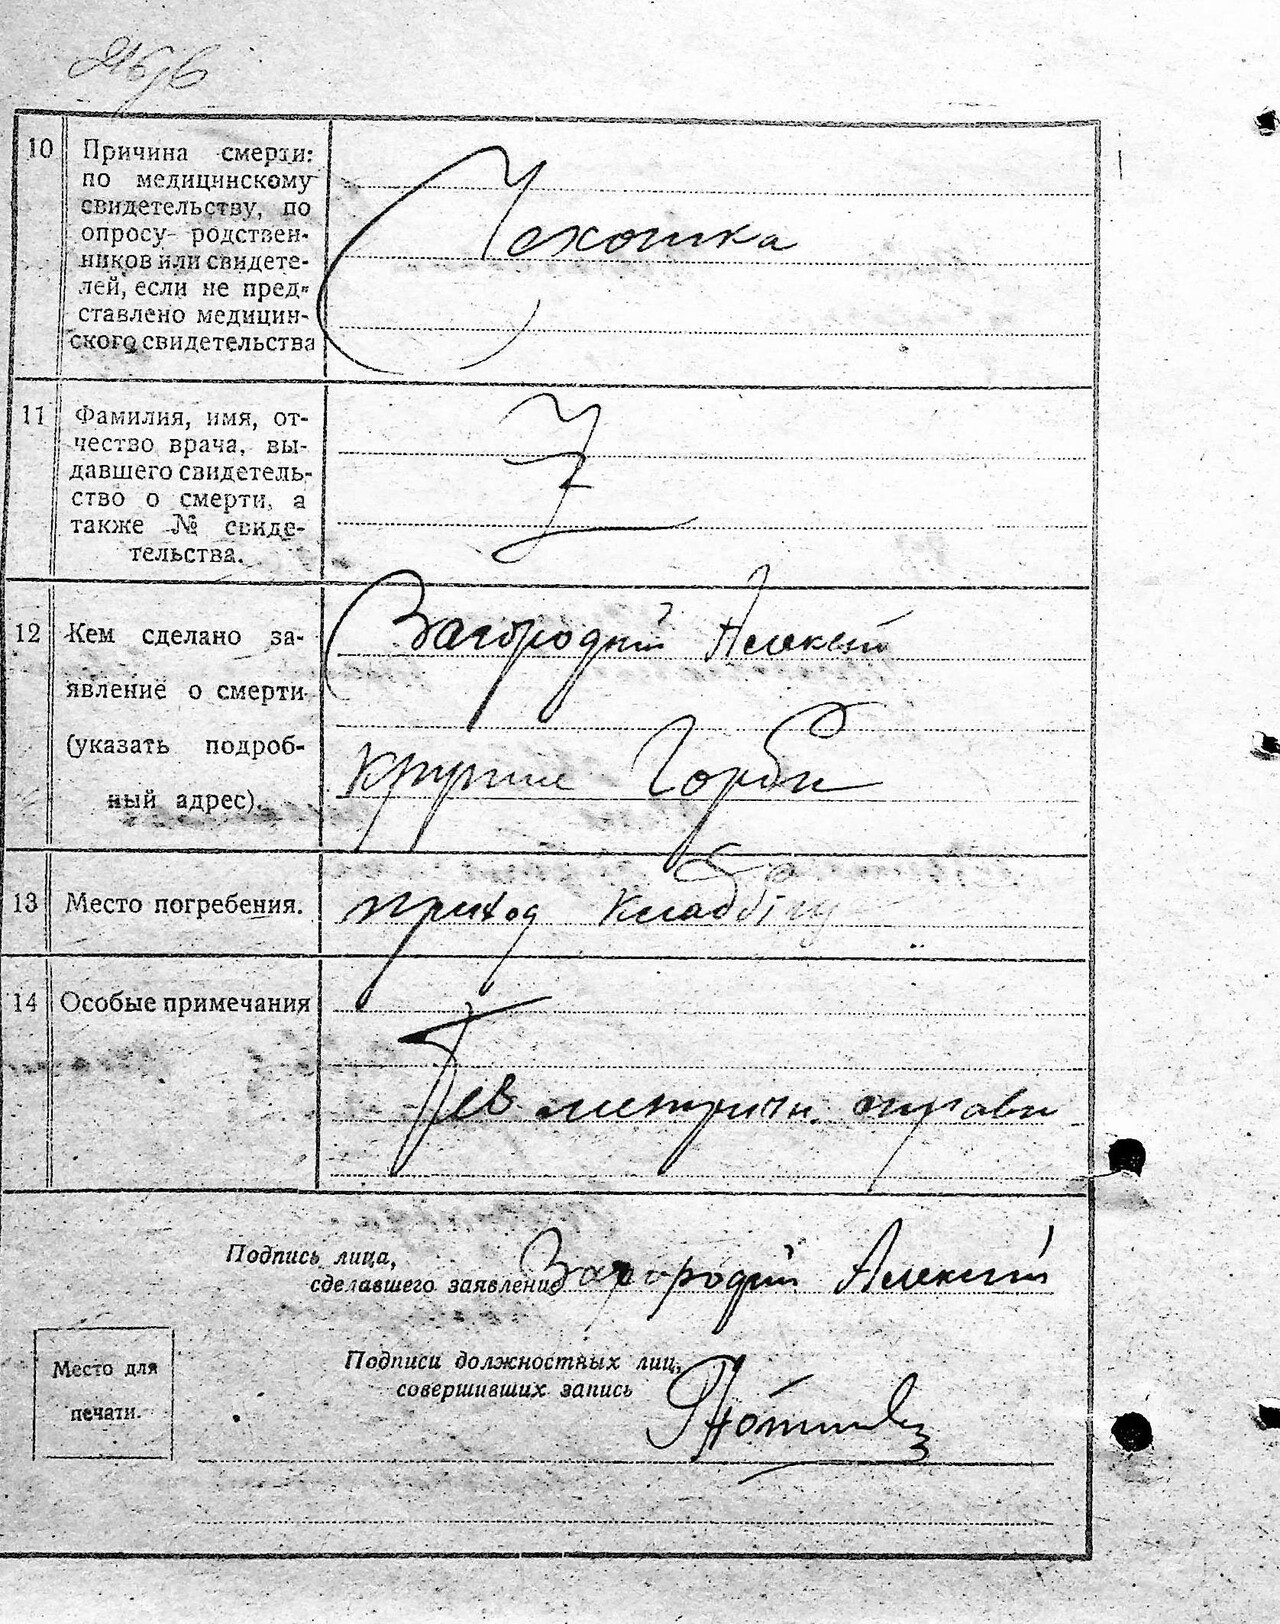 10 Причина смерти:
по медицинскому
свидетельству, по
опросу родствен-
ников или свидете-
лей, если не пред-
ставлено медицин-
ского свидетельства
Чехотка
11 Фамилия, имя, от-
чество врача, вы-
давшего свидетель-
ство о смерти, а
также № свиде-
тельства.
Z
12 Кем сделано за-
явление о смерти
(указать подроб-
ный адрес).
Загородний Алексей
Крутые Горби
13 Место погребения.
приход кладбищ
14 Особые примечания
Без метричн. справки
Подпись лица,
сделавшего заявление
Загородний Алексей
Место для
печати.
Подписи должностных лиц,
совершивших запись